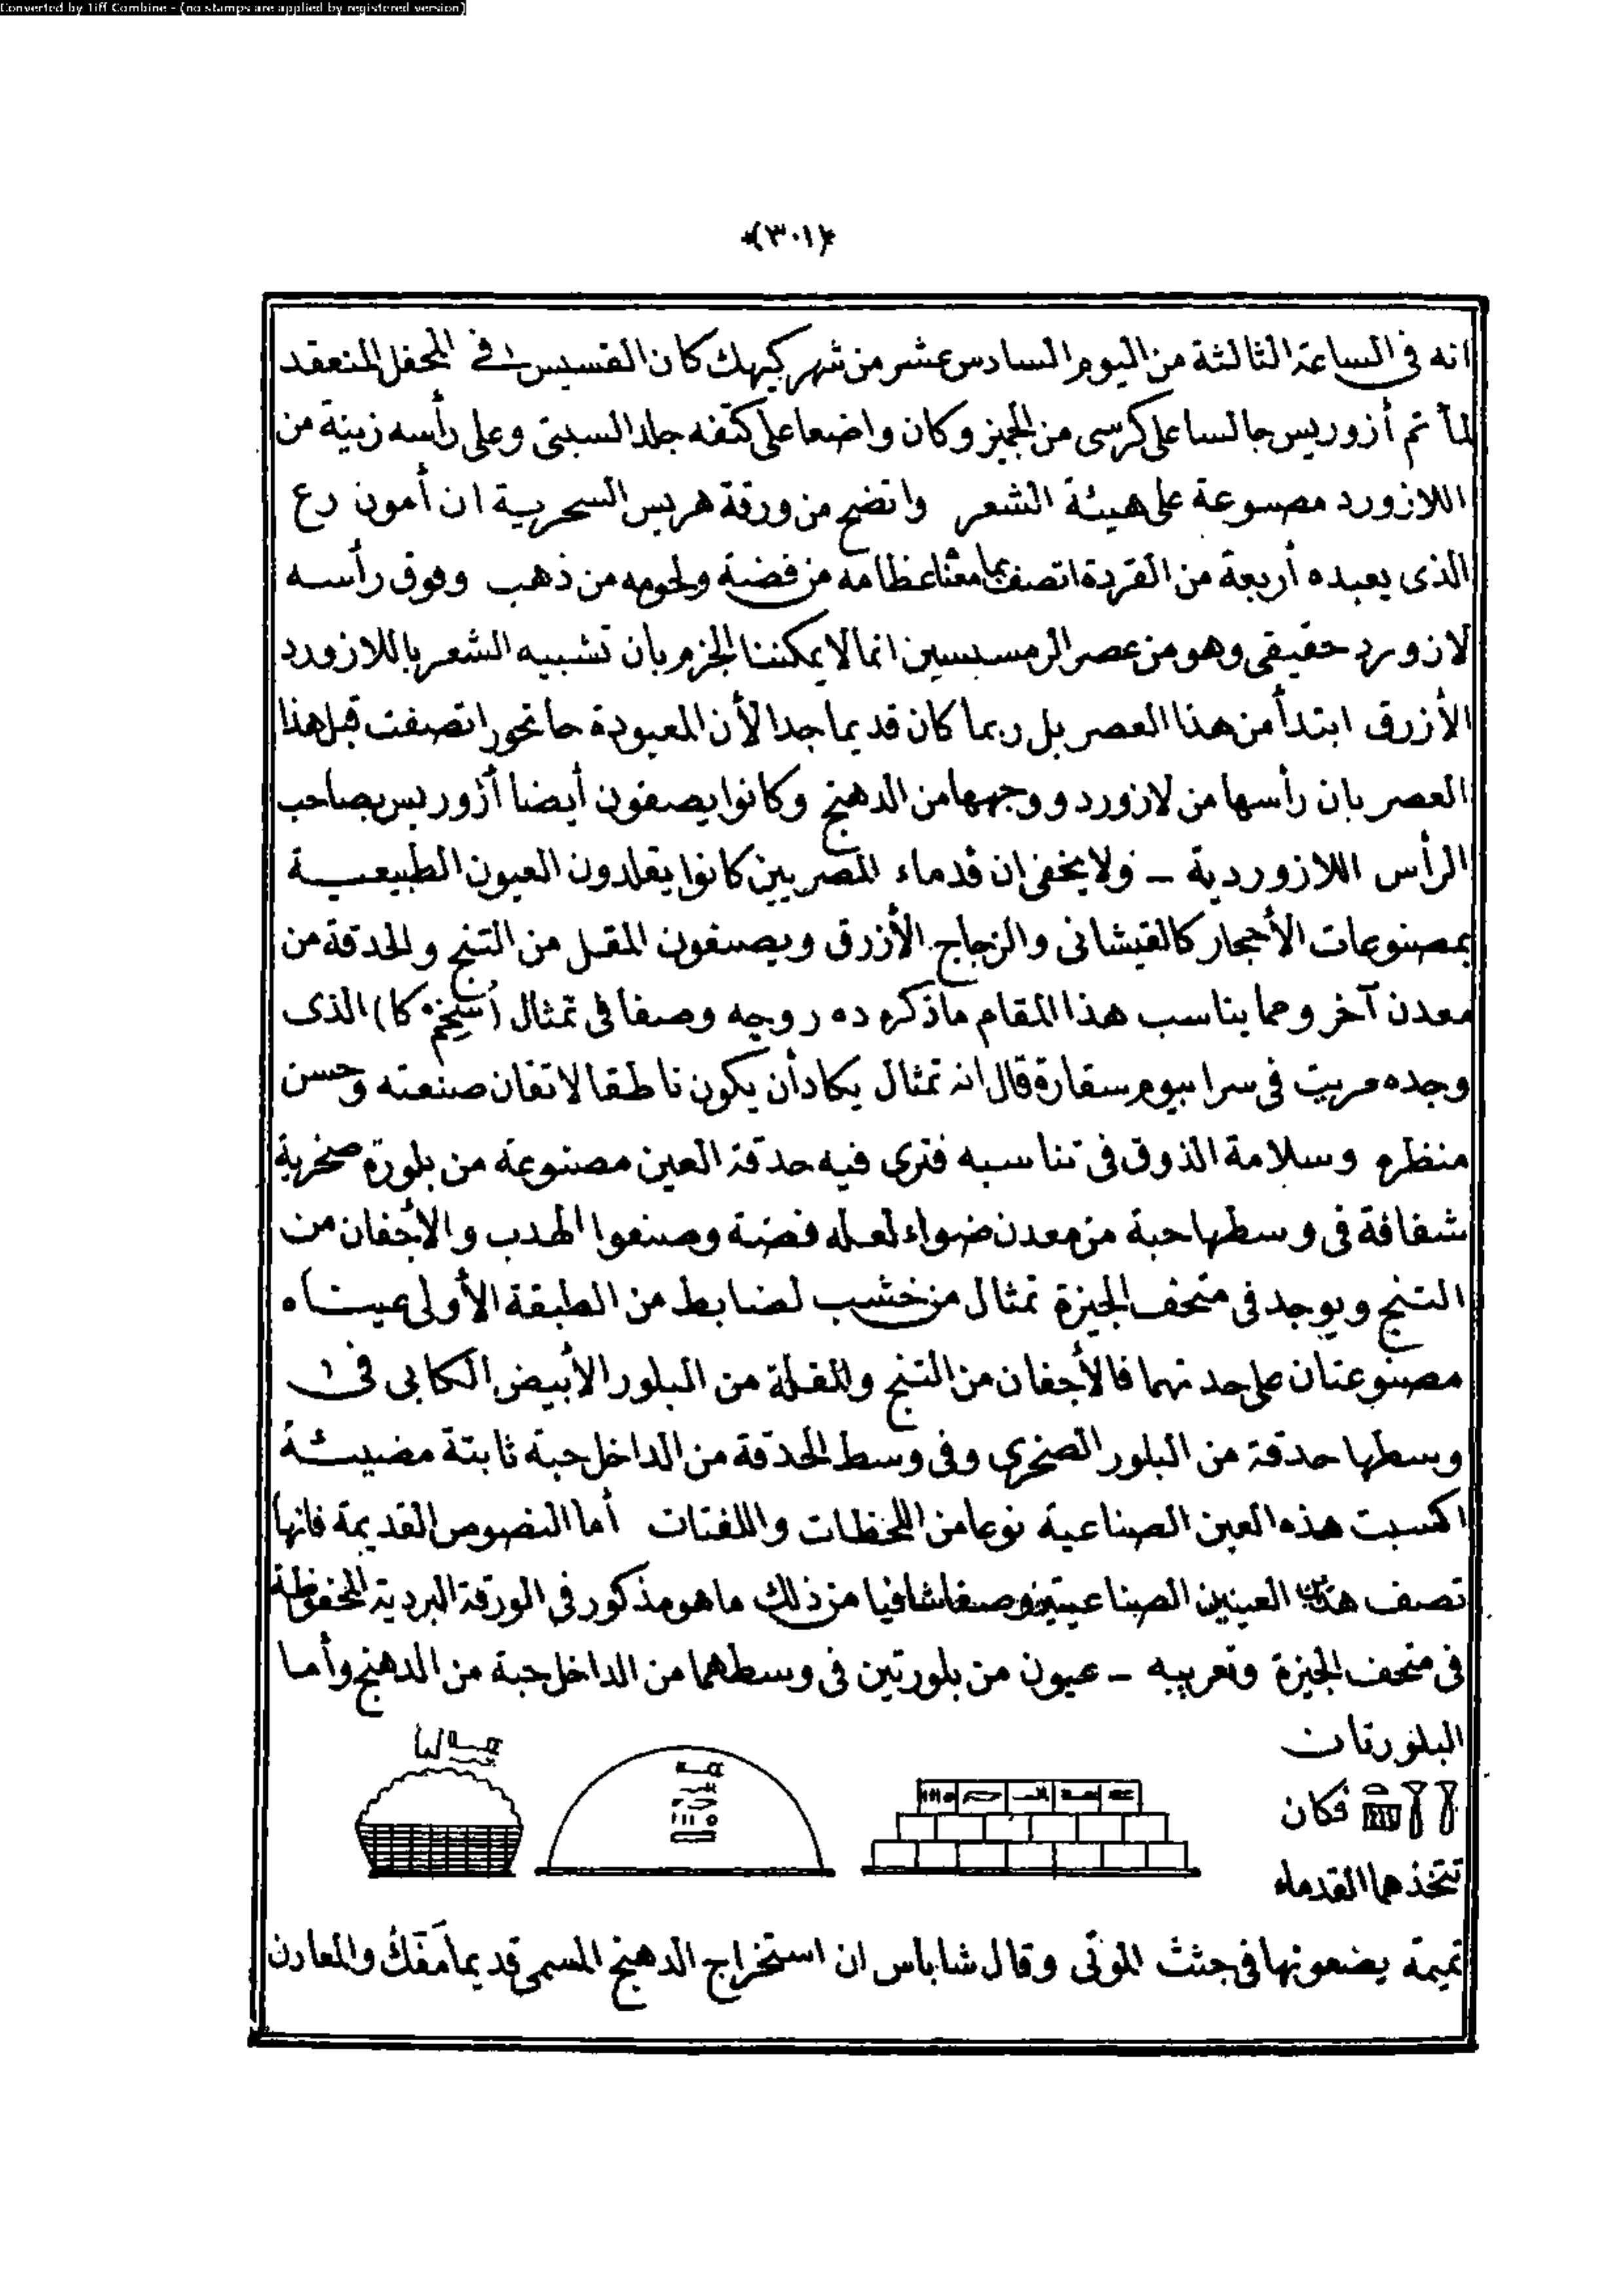 Converted by Tiff Combine - (no stamps are applied by registered version)
﴿٣٠١﴾
انه فى الساعة الثالثة من اليوم السادس عشر من شهر كيهك كان القسيس فى المحفل المنعقد
لمأتم أزوريس جالسا على كرسى من الجميز وكان واضعا على كتفه جلد السبنتى وعلى رأسه زينة من
اللازورد مصنوعة على هيئة الشعر واتضح من ورقة هريس السحرية ان أمون رع
الذى يعبده أربعة من القردة اتصف بما معناه عظامه من فضة ولحومه من ذهب وفوق رأسه
لازورد حقيقى وهو من عصر الرمسيسين انما لا يمكننا الجزم بان تشبيه الشعر باللازورد
الأزرق ابتدأ من هذا العصر بل ربما كان قديما جدا لأن المعبودة حاتحور اتصفت قبل هذا
العصر بان رأسها من لازورد ووجهها من الدهنج وكانوا يصفون أيضا أزوريس بصاحب
الرأس اللازوردية ــ ولا يخفى ان قدماء المصريين كانوا يقلدون العيون الطبيعية
بمصنوعات الأحجار كالقيشانى والزجاج الأزرق ويصنعون المقل من التنج والحدقة من
معدن آخر ومما يناسب هذا المقام ماذكره ده روجه وصفا فى تمثال (سخم كا) الذى
وجده مريت فى سرابيوم سقارة قال انه تمثال يكاد أن يكون ناطقا لاتقان صنعته وحسن
منظره وسلامة الذوق فى تناسبه فترى فيه حدقة العين مصنوعة من بلورة صخرية
شفافة فى وسطها حبة من معدن ضواء لعله فضة وصنعوا الهدب والأجفان من
التنج ويوجد فى متحف الجيزة تمثال من خشب لضابط من الطبقة الأولى عيناه
مصنوعتان على حدتهما فالأجفان من التنج والمقلة من البلور الأبيض الكابى فى
وسطها حدقة من البلور الصخرى وفى وسط الحدقة من الداخل حبة ثابتة مضيئة
اكسبت هذه العين الصناعية نوعا من اللحظات واللفتات أما النصوص القديمة فانها
تصف هذه العينين الصناعيتين وصفا شافيا من ذلك ما هو مذكور فى الورقة البردية المحفوظة
فى متحف الجيزة وتعريبه ــ عيون من بلورتين فى وسطهما من الداخل حبة من الدهنج وأما
البلورتان
فكان
تتخذهما القدماء
تميمة يضعونها فى جثث الموتى وقال شاباس ان استخراج الدهنج المسمى قديما مَفَكْ والمعادن